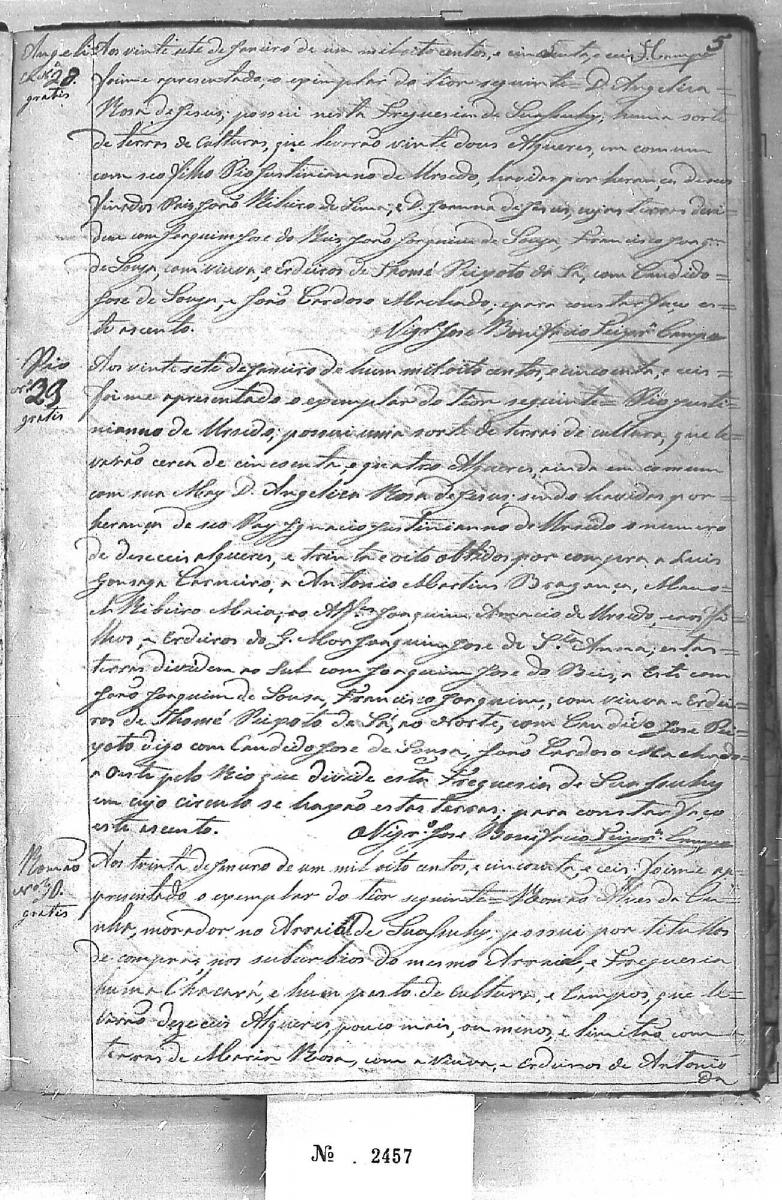 5
Angeli
ca Nº 28.
gratis
Aos vinte sete de Janeiro de um mil oito centos, e cincoenta, e ceis
foi me apresentado, o exemplar do tiôr seguinte = D. Angelica =
Rosa de Jesus; possui nesta Freguesia de Suassuhy, huma sorte
de terras de Culturas, que levarão vinte dous Alqueres, em comum
com seo filho Pio Justinianno de Ursedo, havidas por herança de seus
finados Pais João Ribeiro de Lima, e D. Joanna de Jesus, cujas terras devi=
dem com Joaquim Jose do Reis, João Joaquim de Souza, Francisco Joaqm
de Souza, com viuva e Erdeiros de Thomé Peixoto de Sá, com Candido
Jose de Souza, e João Cardoso Machado, e para constar faço es=
te acento.
O Vigrº Jose Bonifacio Campo
Pio
Nº 29
gratis
Aos vinte sete de Janeiro de hum mil oito centos, e cincoenta, e ceis =
foi me apresentado o exemplar do tiôr seguinte = Pio Justi=
nianno de Ursedo; possui uma sorte de terras de cultura, que le=
varão cerca de cincoenta, e quatro Alqueres, ainda em comum
com sua May D. Angelica Rosa de Jesus; sendo havidas por =
herança de seo Pay Ignacio Justinianno de Ursedo o numero
de deseceis alqueres, e trinta e oito obtidos por compra a Luis
Gonsaga Carneiro, a Antonio Martins Bragança, Mano=
el Ribeiro Maia, ao Alfes Joaquim Amacio de Ursedo, e aos fi
lhos, e Erdeiros do G. Mor Joaquim Jose de Sta Anna; estas
terras dividem ao Sul com Joaquim Jose do Reis, a Este com
João Joaquim de Sousa, Francisco Joaquim, com viuva e Erdei=
ros de Thomé Peixoto de Sá, ao Norte, com Candido Jose Pei
xoto digo com Candido Jose de Sousa, João Cardoso Machado
a Oeste pelo Rio que divide esta Freguesia de Suassuhy
em cujo circulo se haxão estas terras; para constar faço
este acento.
O Vigrº Jose Bonifacio Campo
Romão
Nº 30.
gratis
Aos trinta de Janeiro de um mil oito centos, e cincoenta, e ceis foi me ap
presentado o exemplar do tiôr seguinte = Romão Alves da Cu=
nha, morador no Arraial de Suassuhy; possui por titullos
de compras, nos suburbios do mesmo Arraial, e Freguesia
huma Chacará, e hum pasto de Cultura, e Campos, que le=
varão deseceis Alqueres, pouco mais, ou menos, e limitão com
terras de Maria Rosa, com a viuva, e Erdeiros de Antonio
da
Nº . 2457